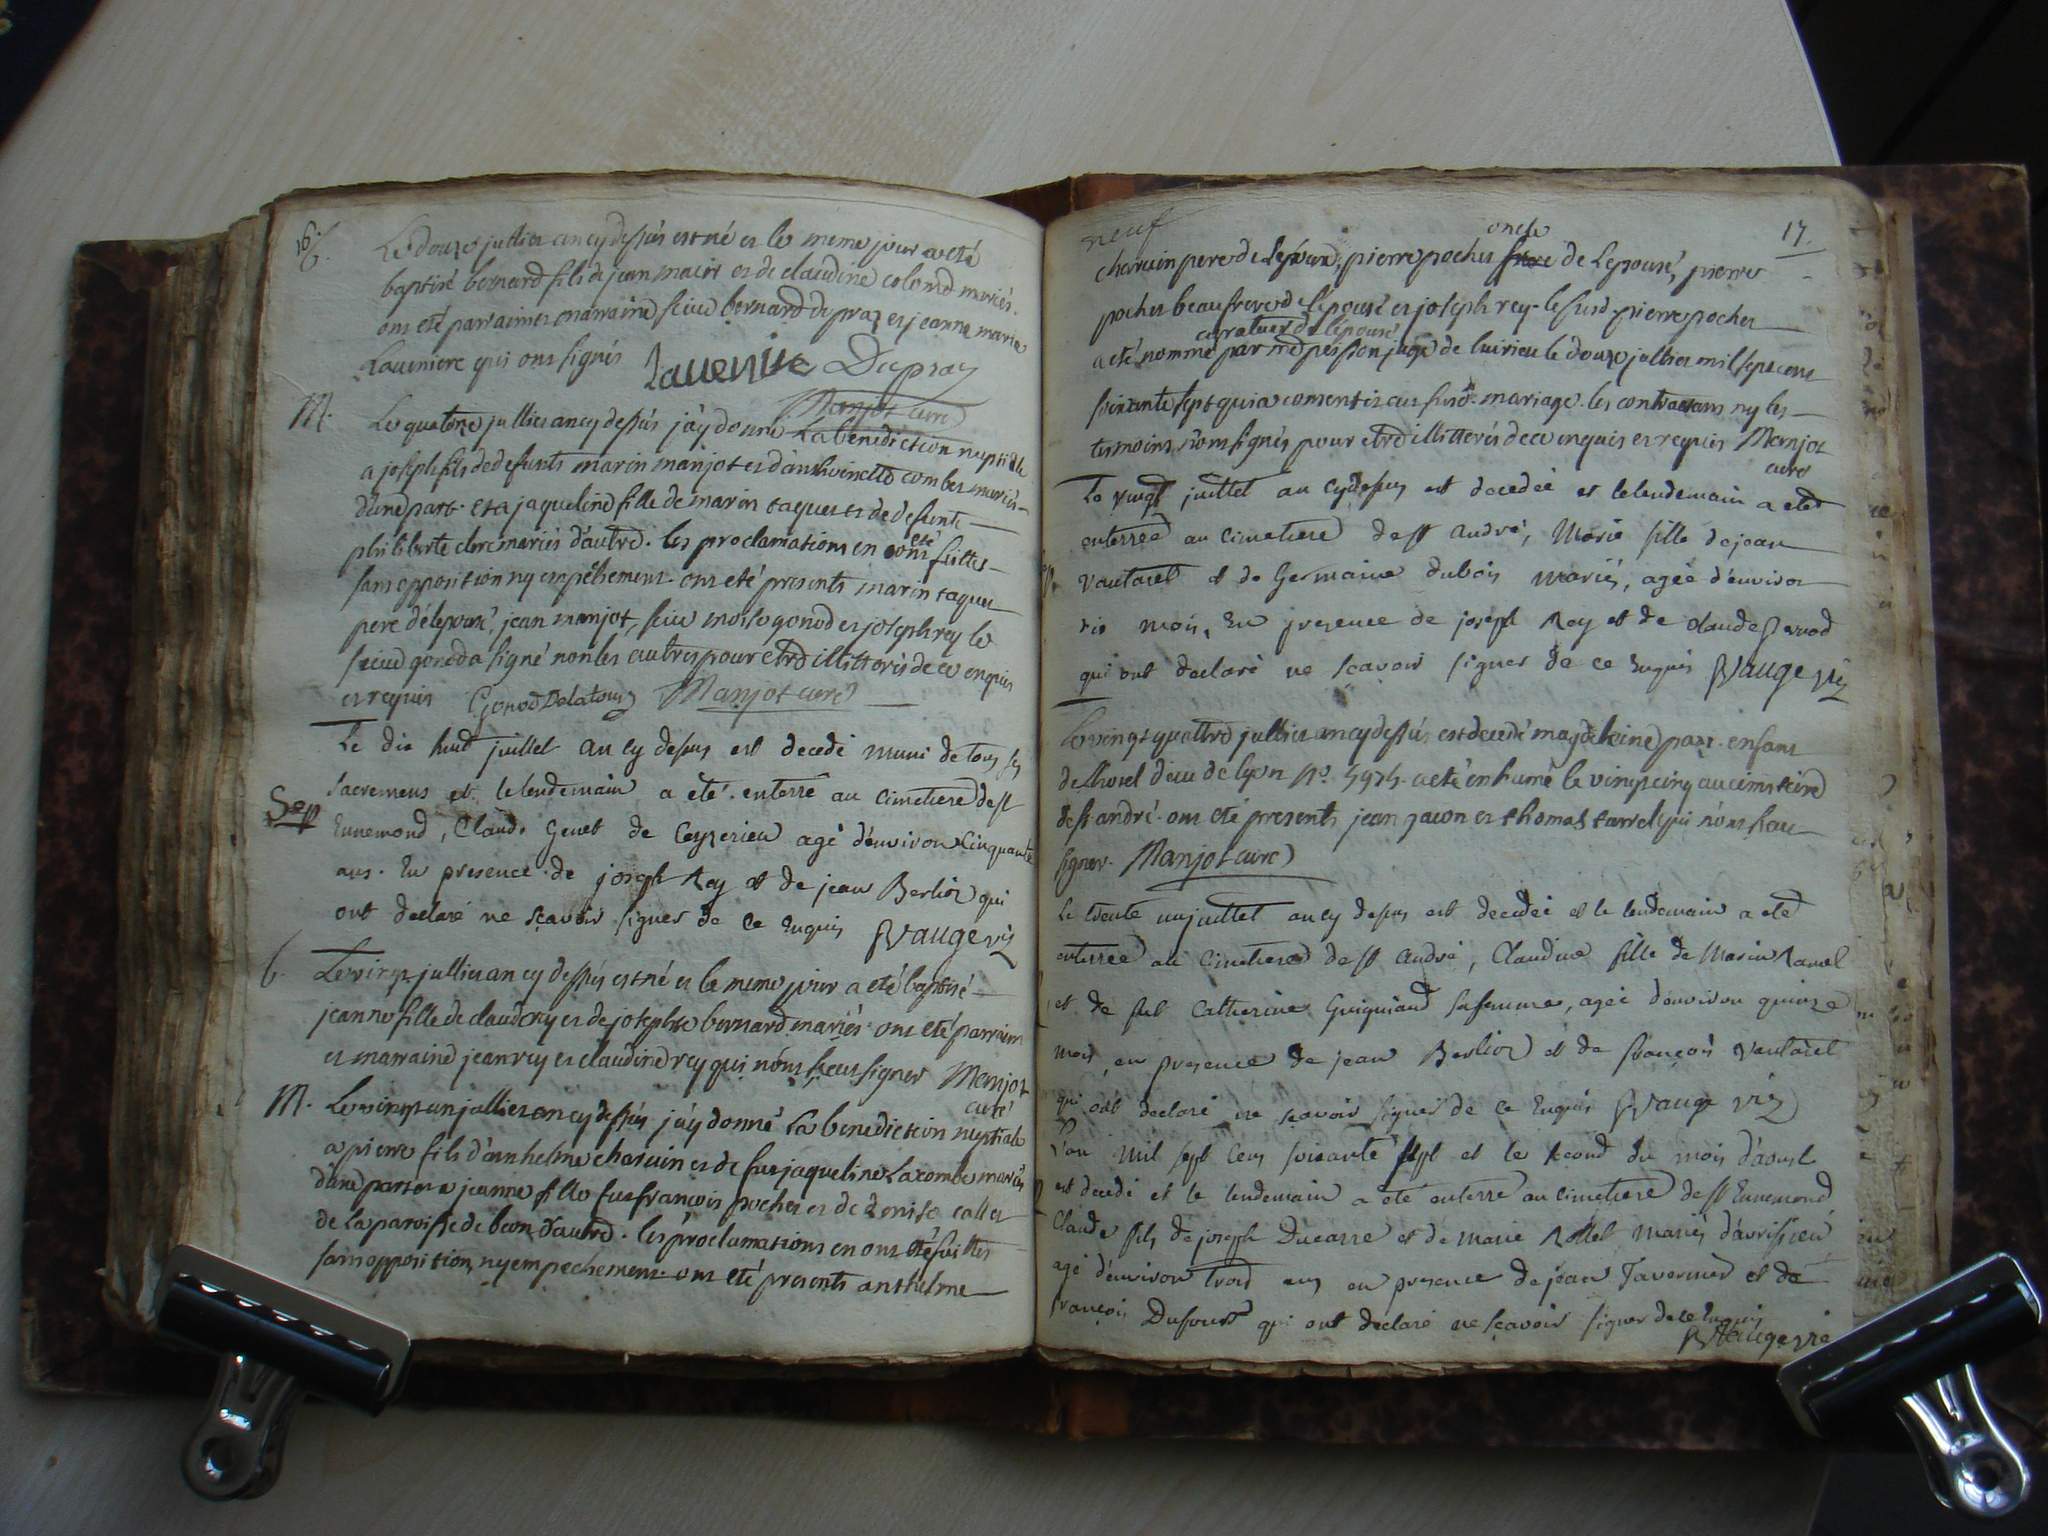 16.
b. Le douze jullier an cy dessus est né er le meme jour a eté
baptisé bernard fils de jean macit er de claudine colomd mariés.
ont eté parrain er marraine sieur bernard dupraz er jeanne marie
Laueniere qui ons signés Lauenire Dupraz
Manjot curé
M. Le quatorze jullier an cy dessus j'ay donné La benediction nuptiale
a joseph fils de defunts marin manjot er d'anthoinette combes mariés
d'une part. er a jaqueline fille de marin taquer er de defunte
philiberte clerc mariés d'autre. les proclamations en ont eté faittes
sans opposition ny empêchement. ont eté presents marin taquer
pere de l'epouse, jean manjot, sieur moise gonod er joseph rey le
sieur gonod a signé non les autres pour etre illitterés de ce enquis
er requis Gonod Delatour Manjot curé
Le dix huit juillet an cy dessus est decedé muni de tous ses
Sacremens et le lendemain a eté enterré au cimetiere de st
Sep
Ennemond, Claude Genet de Ceyzerieu agé d'environ cinquante
ans. En presence de joseph Rey et de jean Berlioz qui
ont declaré ne scavoir signer de ce Enquis Vauge vic
b. Le vingt jullier an cy dessus est né er le meme jour a eté baptisé
jeanne fille de claude rey er de josephte bernard mariés. ont eté parrain
er marraine jean rey er claudine rey qui n'ont sceu signer Manjot
curé
M. Le vingt un jullier an cy dessus j'ay donné La benediction nuptiale
a pierre fils d'anthelme charuin er de fue jaqueline Lacombe mariés
d'une part er a jeanne fille fue françois pocher er de denise caller
de la paroisse de beon d'autre. les proclamations en ont eté faittes
sans opposition, ny empechement. ont eté presents anthelme
17.
neuf
oncle
charuin pere de Lepoux, pierre pocher frere de Lepouse, pierre
pocher beaufrere de l'epouse er joseph rey. le susd. pierre pocher
curateur de l'epouse
a eté nommé par me peisson juge de luirieu le douze jullier mil sept cent
soixante sept qui a consenti au susd. mariage. les contractans ny les
temoins n'ont signés pour etre illitterés de ce enquis er requis Manjot
curé
Le vingt juillet an cydessus est decedée et le lendemain a eté
enterrée au cimetiere de st André, Marie fille de jean
Vautaret et de Germaine dubois mariés, agée d'environ
six mois, En presence de joseph Rey et de Claude Peruod
qui ont declaré ne scavoir signer de ce Enquis Vauge vic
Le vingt quattre jullier an cy dessus est decedé magdeleine paz. enfant
de l'hotel dieu de Lyon No. 5974. a eté inhumé le vingt cinq au cimetiere
de st andré. ont eté presents jean jacon er thomas tarrel qui n'ont sceu
signer. Manjot curé
Le trente un juillet an cy dessus est decedée et le lendemain a eté
enterrée au cimetiere de st André, Claudine fille de Marin Ravel
et de Catherine Guiguiand sa femme, agée d'environ quinze
mois, en presence de jean Berlioz et de françois Vautaret
qui ont declaré ne scavoir signer de ce Enquis Vauge vic
L'an Mil sept Cens soixante sept et le second du mois d'aoust
est decedé et le lendemain a eté enterré au cimetiere de st Ennemond
Claude fils de joseph Ducarre et de Marie Rollet mariés d'avrissieu
agé d'environ trois ans en presence de jean Tavernier et de
françois Dufour qui ont declaré ne scavoir signer de ce Enquis
Vauge vic